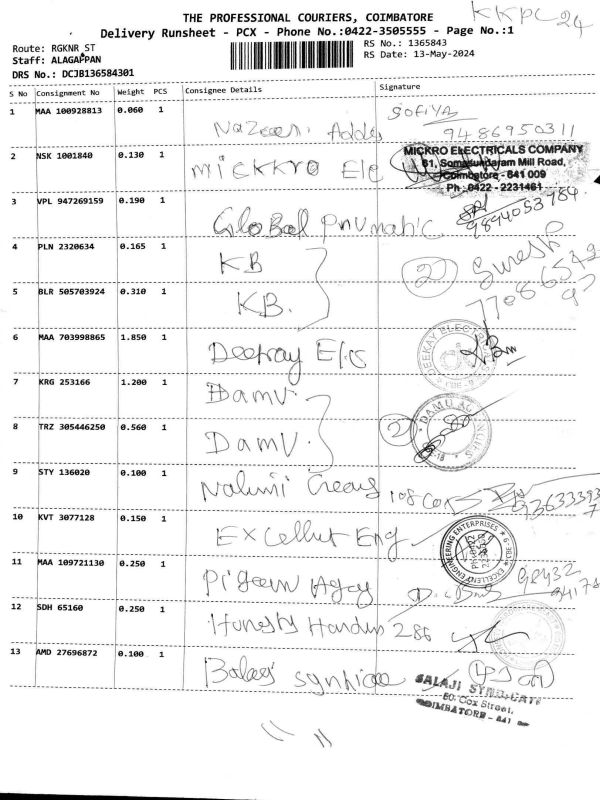 KKPC 24
THE PROFESSIONAL COURIERS, COIMBATORE
Delivery Runsheet - PCX - Phone No.:0422-3505555 - Page No.:1
Route: RGKNR ST
Staff: ALAGAPPAN
DRS No.: DCJB136584301
RS No.: 1365843
RS Date: 13-May-2024
S No Consignment No Weight PCS Consignee Details Signature
1 MAA 100928813 0.060 1 SOFIYA
9486950311
2 NSK 1001840 0.130 1 Mickkro Ele
MICKRO ELECTRICALS COMPANY
61, Somasundaram Mill Road,
Coimbatore - 641 009
Ph : 0422 - 2231461
3 VPL 947269159 0.190 1 Global Pnumatic
9894053784
4 PLN 2320634 0.165 1 KB
2 Suresh
5 BLR 505703924 0.310 1 KB.
6 MAA 703998865 1.850 1 Deekay Elcs
DEEKAY ELECTRICALS
7 KRG 253166 1.200 1 Damu.
8 TRZ 305446250 0.560 1 Damu.
2 DAMU AGENCIES
9 STY 136020 0.100 1
10 KVT 3077128 0.150 1 Excellut Eng
EXCELLENT ENGINEERING ENTERPRISES
11 MAA 109721130 0.250 1 Pigeon Agcy
12 SDH 65160 0.250 1 286
13 AMD 27696872 0.100 1
BALAJI SYNDICATE
80, Cox Street,
COIMBATORE - 641